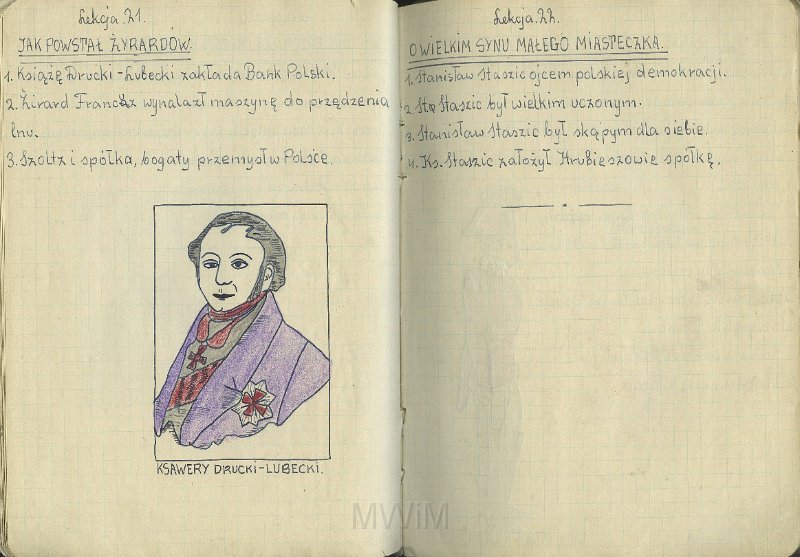 Lekcja 21.
JAK POWSTAŁ ŻYRARDÓW.
1. Książę Drucki-Lubecki zakłada Bank Polski.
2. Żirard Francuz wynalazł maszynę do przędzenia
lnu.
3. Szoltz i spółka, bogaty przemysł w Polsce.
KSAWERY DRUCKI-LUBECKI.
Lekcja 22.
O WIELKIM SYNU MAŁEGO MIASTECZKA.
1. Stanisław Staszic ojcem polskiej demokracji.
2. Sta Staszic był wielkim uczonym.
3. Stanisław Staszic był skąpym dla siebie.
4. Ks. Staszic założył Hrubieszowie spółkę.
MWiM